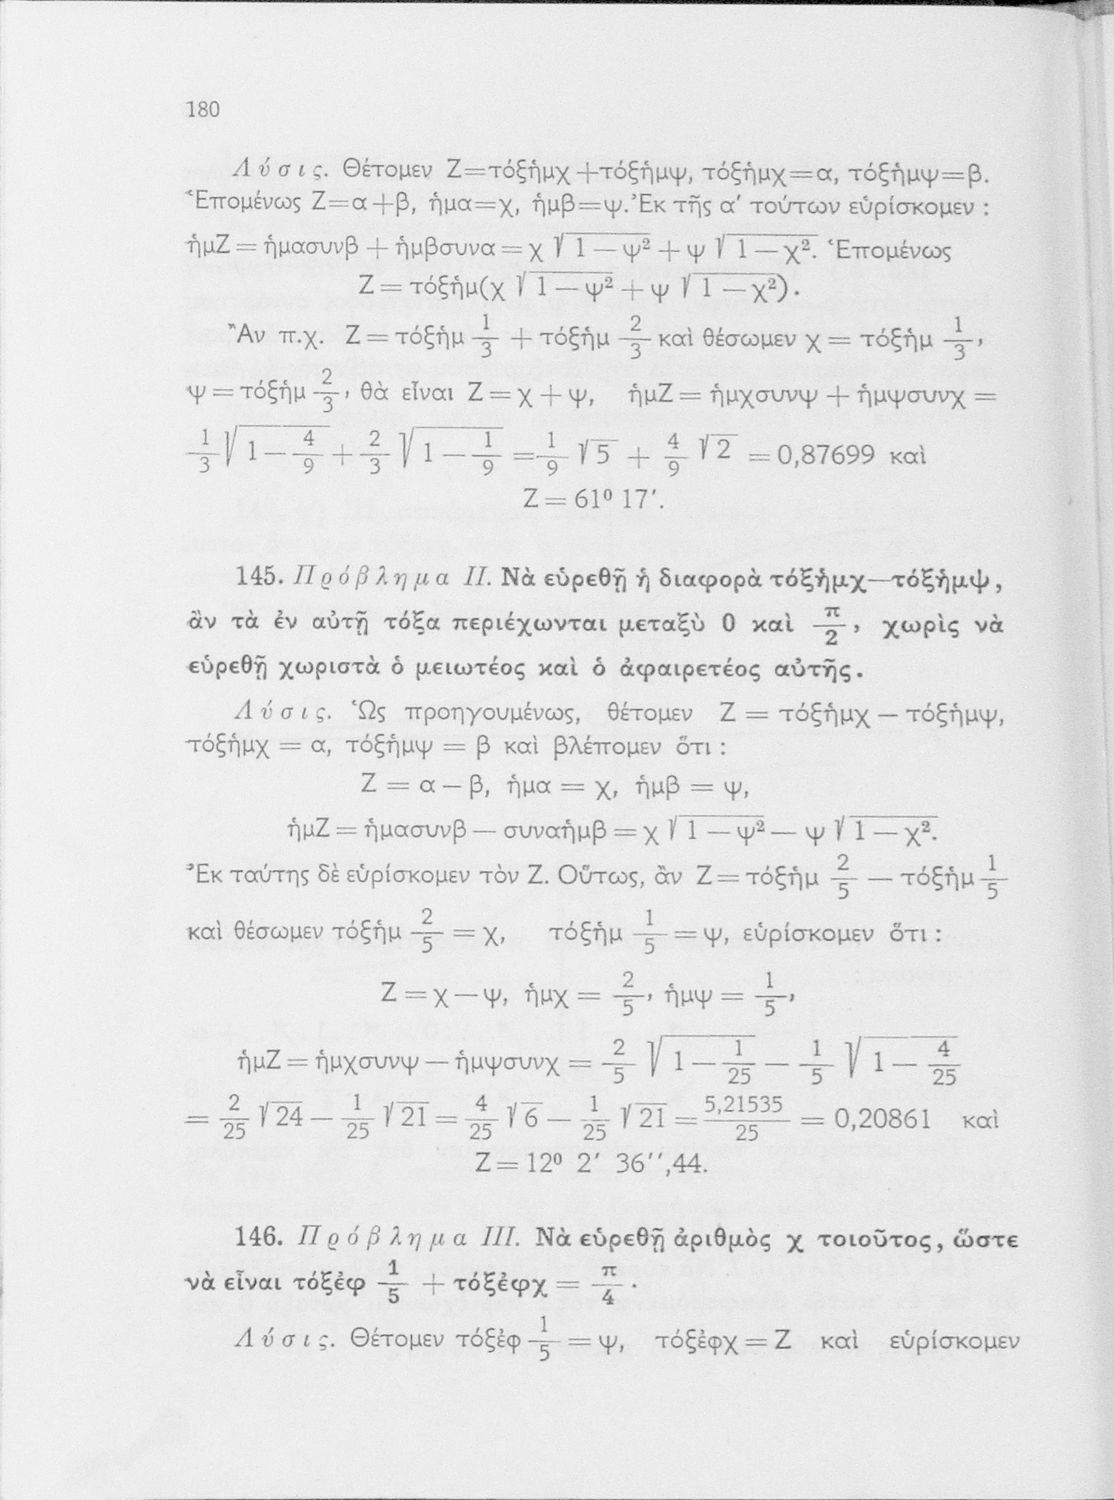 180
Λύσις. Θέτομεν Ζ=τόξἡμχ+τόξἡμψ, τόξἡμχ=α, τόξἡμψ=β.
Ἑπομένως Ζ=α+β, ἡμα=χ, ἡμβ=ψ. Ἐκ τῆς α′ τούτων εὑρίσκομεν :
ἡμΖ = ἡμασυνβ + ἡμβσυνα = χ √(1 — ψ²) + ψ √(1 — χ²). Ἑπομένως
Ζ = τόξἡμ(χ √(1 — ψ²) + ψ √(1 — χ²)).
Ἂν π.χ. Ζ = τόξἡμ 1/3 + τόξἡμ 2/3 καὶ θέσωμεν χ = τόξἡμ 1/3,
ψ = τόξἡμ 2/3, θὰ εἶναι Ζ = χ + ψ, ἡμΖ = ἡμχσυνψ + ἡμψσυνχ =
1/3 √(1 — 4/9) + 2/3 √(1 — 1/9) = 1/9 √5 + 4/9 √2 = 0,87699 καὶ
Ζ = 61⁰ 17′.
145. Πρόβλημα II. Νὰ εὑρεθῇ ἡ διαφορὰ τόξἡμχ—τόξἡμψ,
ἂν τὰ ἐν αὐτῇ τόξα περιέχωνται μεταξὺ 0 καὶ π/2, χωρὶς νὰ
εὑρεθῇ χωριστὰ ὁ μειωτέος καὶ ὁ ἀφαιρετέος αὐτῆς.
Λύσις. Ὡς προηγουμένως, θέτομεν Ζ = τόξἡμχ — τόξἡμψ,
τόξἡμχ = α, τόξἡμψ = β καὶ βλέπομεν ὅτι :
Ζ = α — β, ἡμα = χ, ἡμβ = ψ,
ἡμΖ = ἡμασυνβ — συναἡμβ = χ √(1 — ψ²) — ψ √(1 — χ²).
Ἐκ ταύτης δὲ εὑρίσκομεν τὸν Ζ. Οὕτως, ἂν Ζ = τόξἡμ 2/5 — τόξἡμ 1/5
καὶ θέσωμεν τόξἡμ 2/5 = χ, τόξἡμ 1/5 = ψ, εὑρίσκομεν ὅτι :
Ζ = χ — ψ, ἡμχ = 2/5, ἡμψ = 1/5,
ἡμΖ = ἡμχσυνψ — ἡμψσυνχ = 2/5 √(1 — 1/25) — 1/5 √(1 — 4/25)
= 2/25 √24 — 1/25 √21 = 4/25 √6 — 1/25 √21 = 5,21535/25 = 0,20861 καὶ
Ζ = 12⁰ 2′ 36″,44.
146. Πρόβλημα III. Νὰ εὑρεθῇ ἀριθμὸς χ τοιοῦτος, ὥστε
νὰ εἶναι τόξἐφ 1/5 + τόξἐφχ = π/4.
Λύσις. Θέτομεν τόξἐφ 1/5 = ψ, τόξἐφχ = Ζ καὶ εὑρίσκομεν